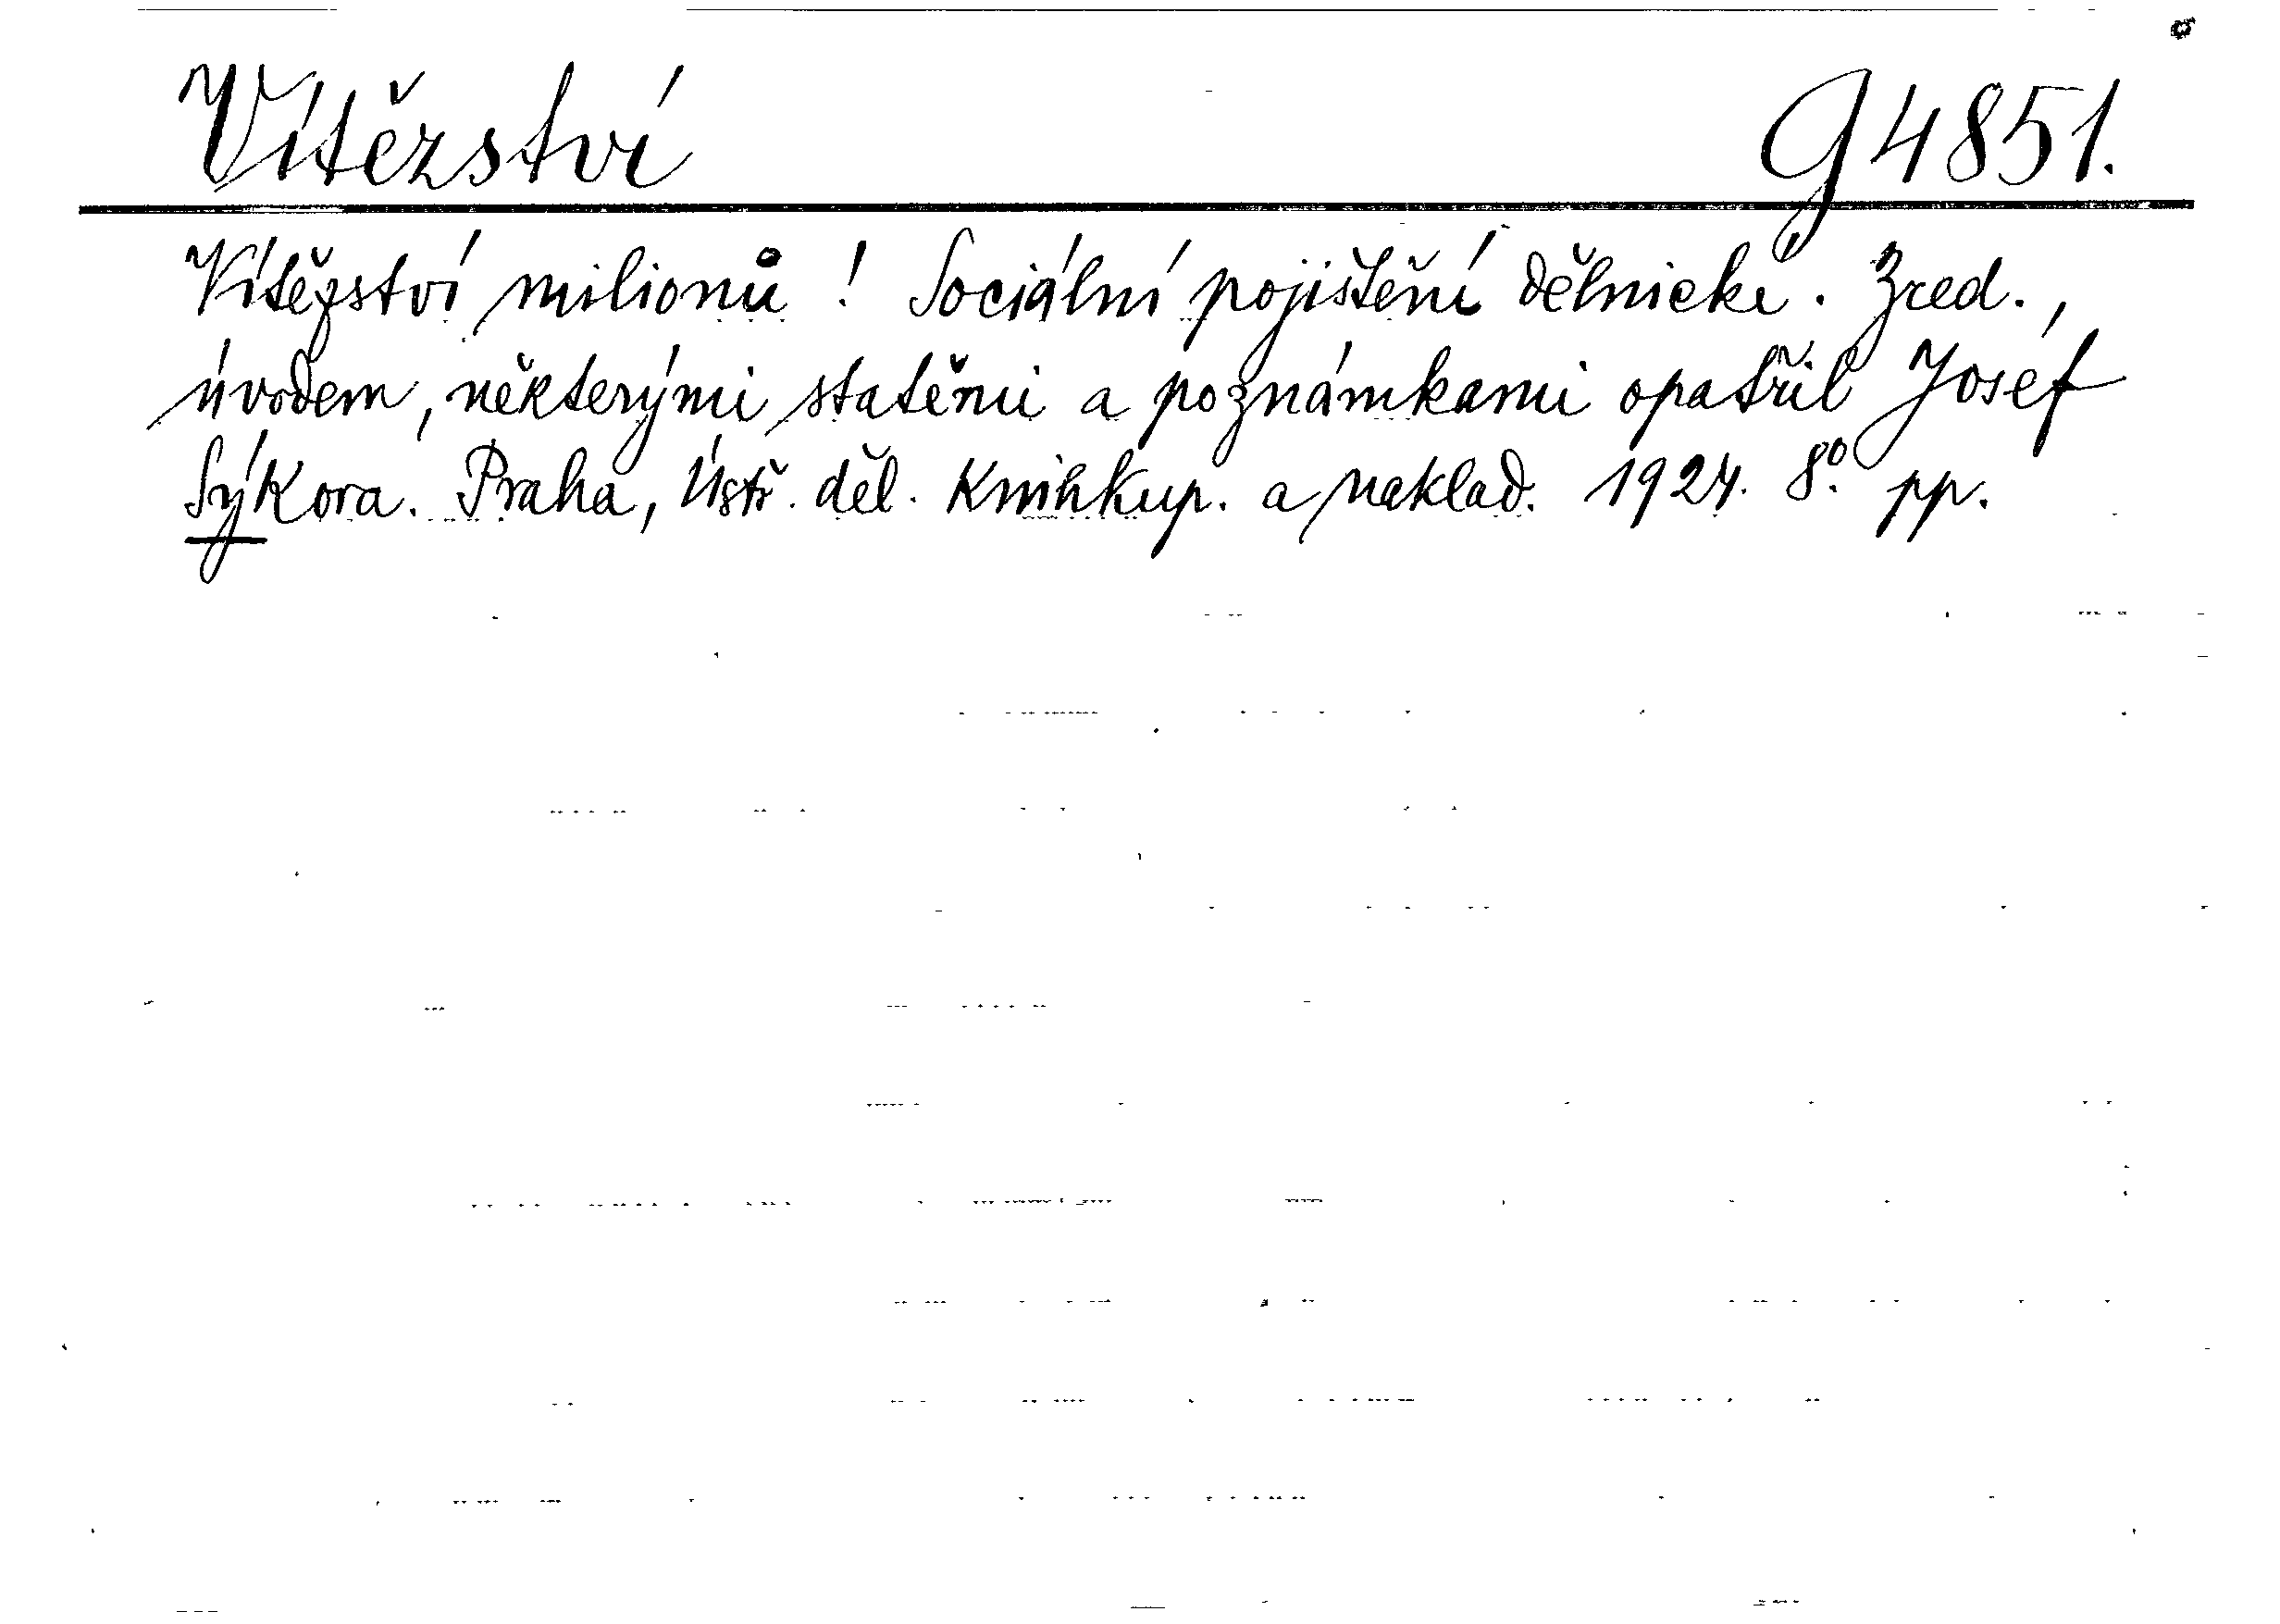 Vítězství g 4851.
Vítězství milionů! Sociální pojištění dělnické. Zred.,
úvodem, některými statěmi a poznámkami opatřil Josef
Sýkora. Praha, Ústř. děl. knihkup. a naklad. 1924. 8° pp.